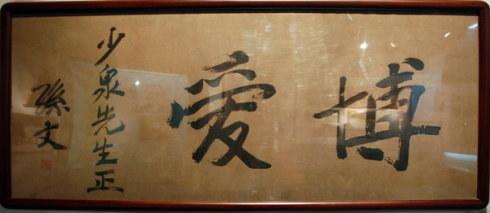 博愛
少泉先生正
孫文